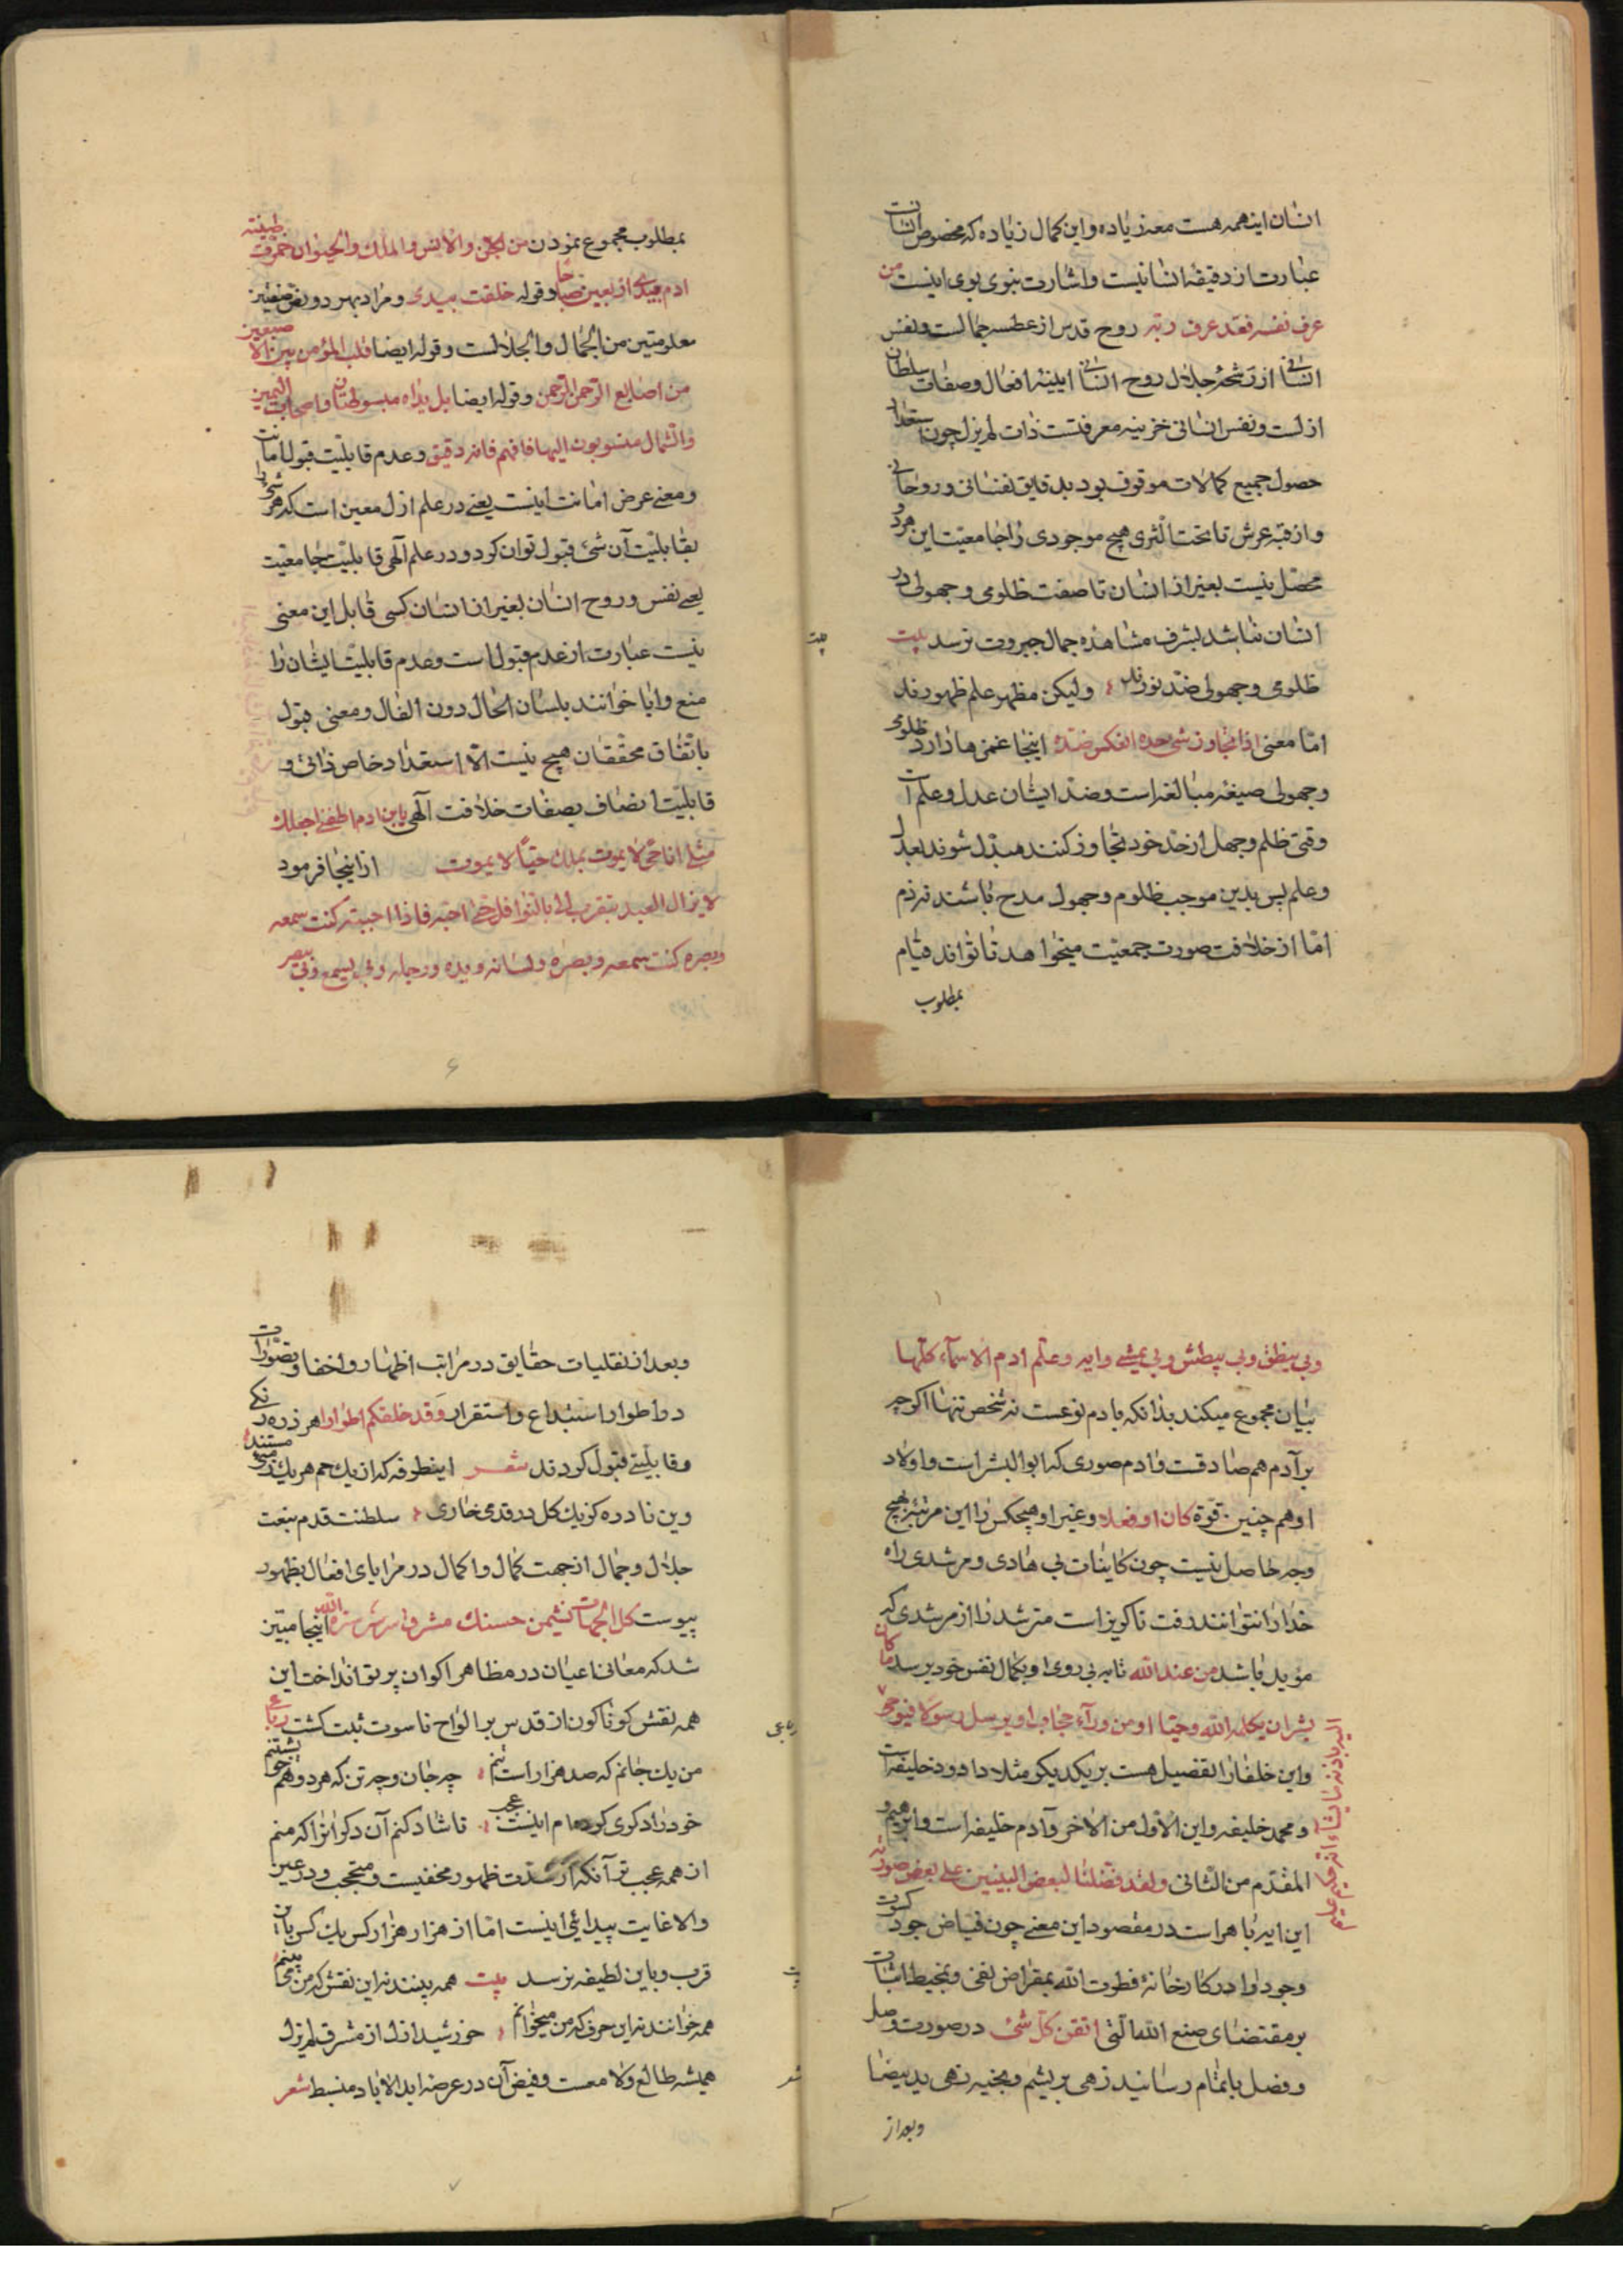 انسان اینهمه هست معه زیاده و این کمال زیاده که مخصوص انسانست
عبارت از دقیقهٔ انسانیست و اشارت نبوی بوی اینست من
عرف نفسه فقد عرف ربّه روح قدس از عطسه جمالست و نفس
انسانی از رشحهٔ جلال روح انسانی ایینهٔ افعال و صفات سلطان
ازلست و نفس انسانی خزینهٔ معرفتست ذات لم یزل چون استعداد
حصول جمیع کمالات موقوف بود بدقایق نفسانی و روحانی
و از قبّهٔ عرش تا تحت الثری هیچ موجودی را جامعیّت این هردو
محصّل نیست بغیر از انسان تا صفت ظلومی و جهولی در
انسان نباشد بشرف مشاهدهٔ جمال جبروت نرسد بیت
ظلومی و جهولی ضدّ نورند ولیکن مظهر علم ظهورند
امّا معنی اذا تجاوز شی حده انعکس ضدّه اینجا غمزها دارد ظلومی
و جهولی صیغهٔ مبالغه است و ضدّ ایشان عدل و علم است
وقتی ظلم و جهل از حدّ خود تجاوز کنند مبدّل شوند بعدل
و علم پس بدین موجب ظلوم و جهول مدح باشند نه ذم
امّا از خلافت صورت جمعیّت میخواهد تا تواند قیام
بمطلوب
بیت
بمطلوب مجموع نمودن من الجنّ والانس والملک والحیوان خمّرت طینته
ادم بیدی اربعین صباحا و قوله خلقت بیدی و مراد بهر دو
معلومتین من الجمال والجلالست و قوله ایضا قلب المؤمن بین الاصبعین
من اصابع الرحمن و قوله ایضا بل یداه مبسوطتان و اصحاب الیمین
والشمال منسوبون الیها فافهم فانه دقیق و عدم قابلیّت قبول امانت
و معنی عرض امانت اینست یعنی در علم ازل معین است که هر شئ را
بقابلیّت آن شئ قبول توان کرد و در علم الهی قابلیّت جامعیّت
یعنی نفس و روح انسان بغیر از انسان کسی قابل این معنی
نیست عبارت از عدم قبول است و عدم قابلیّت ایشان را
منع و ابا خوانند بلسان الحال دون القال و معنی قبول
باتّفاق محقّقان هیچ نیست الّا استعداد خاص ذاتی و
قابلیّت اتصاف بصفات خلافت الهی یابن ادم اطعنی اجعلک
مثلی انا حیّ لا یموت حیّا لا یموت از اینجا فرمود
لا یزال العبد یتقرب الی بالنوافل حتی احبّه فاذا احببته کنت سمعه
وبصره کنت سمعه وبصره ولسانه ویده ورجله وبی یسمع وبی یبصر
۶
وبی ینطق وبی یبطش وبی یمشی وایه وعلّم ادم الاسماء کلّها
بیان مجموع میکند بدانکه بادم نوعست نه شخص تنها اگرچه
بر آدم هم صادقست و ادم صوری که ابوالبشر است و اولاد
او هم چنین قوّة کان او فعلا و غیر او هیچکس را این مرتبه بهیچ
وجه حاصل نیست چون کاینات بی هادی و مرشدی راه
خدا را نتوانند رفت ناگویز است مترشد را از مرشدی که
مؤید باشد من عند الله تا به پی روی او بکمال نفس خود برسد ما کان
بشر ان یکلمه الله وحیا او من ورآء حجاب او یرسل رسولا فیوحی
الیه باذنه ما یشاء انه
و این خلفا را تفضیل هست بر یکدیگر مثلا داود خلیفه است
و محمد خلیفه و این الاول من الاخر و آدم خلیفه است و ابرهیم و
المقدّم من الثانی ولقد فضلنا لبعض النبیین علی بعض صورت
این ایه باهر است در مقصود این معنی چون فیاض جود کسوت
وجود را در کارخانهٔ فطرت الله بمقراض نفی و بمخیط اثبات
بر مقتضای صنع الله الّذی اتقن کلّ شئ در صورت وصل
و فصل باتمام رسانید زهی بریشم و بخیه زهی ید بیضا
و بعد از
و بعد از تقلیبات حقایق در مراتب اظهار و اخفا و تصوّرات
در اطوار استبداع و استقرار وقد خلقکم اطوارا هر ذره رنگی
و قابلیّتی قبول کردند شعر اینطرفه که از یک خم هر یک مستند
وین نادره کز یک گل در قدمی خاری سلطنت قدم بنعت
جلال و جمال از جهت کمال و اکمال در مرایای افعال بظهور
پیوست کل الجهات نشیمن حسنک مشرق الله اینجا مبیّن
شد که معانی اعیان در مظاهر اکوان پرتو انداخت این
همه نقش گوناگون از قدس بر الواح ناسوت ثبت گشت رباعی
رباعی
من یک جانم که صد هزار است تنم چه جان و چه تن که هر دو هم خویشتنم
خود را دگری کرده‌ام اینست عجب تا شاد کنم آن دگر انرا که منم
از همه عجب‌تر آنکه از شدّت ظهور مخفیست و محتجب و در عین
والا غایت پیدائی اینست امّا از هزار هزار کس یک کس باین
قرب و باین لطیفه نرسد بیت همه بینند نه این نقش که من می‌بینم
همه خوانند نه این حرف که من میخوانم خورشید ازل از مشرق لم یزل
همیشه طالع و لامعست و فیض آن در عرصهٔ ابد الاباد منبسط شعر
شعر
۷